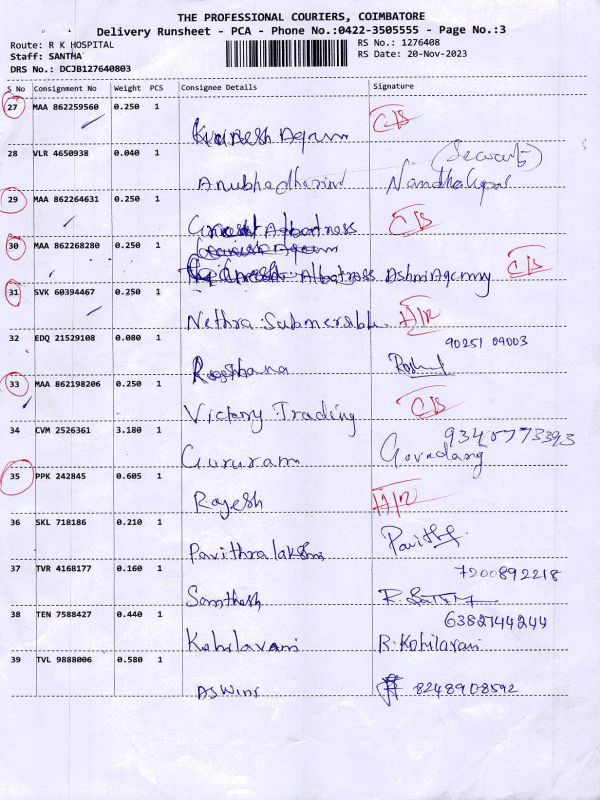 THE PROFESSIONAL COURIERS, COIMBATORE
Delivery Runsheet - PCA - Phone No.:0422-3505555 - Page No.:3
Route: R K HOSPITAL RS No.: 1276408
Staff: SANTHA RS Date: 20-Nov-2023
DRS No.: DCJB127640803
S No Consignment No Weight PCS Consignee Details Signature
27 MAA 862259560 0.250 1
28 VLR 4650938 0.040 1
(Security)
29 MAA 862264631 0.250 1
30 MAA 862268280 0.250 1
Albatross Ashni Agency
31 SVK 60394467 0.250 1
Nethra Submersible H/R
32 EDQ 21529108 0.080 1 90251 09003
Roshana
33 MAA 862198206 0.250 1
Victory Trading
34 CVM 2526361 3.180 1
Gururam
35 PPK 242845 0.605 1
Rajesh H/R
36 SKL 718186 0.210 1
Pavithralakshmi
37 TVR 4168177 0.160 1 7200892218
Santhosh
38 TEN 7588427 0.440 1 6382144244
Kohilavani R. Kohilavani
39 TVL 9888006 0.580 1
Aswini 8248908592